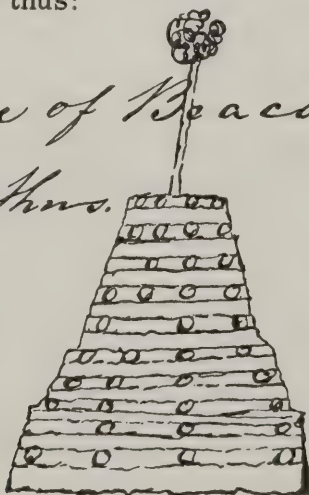 thus:
e of Beaco
Thus.